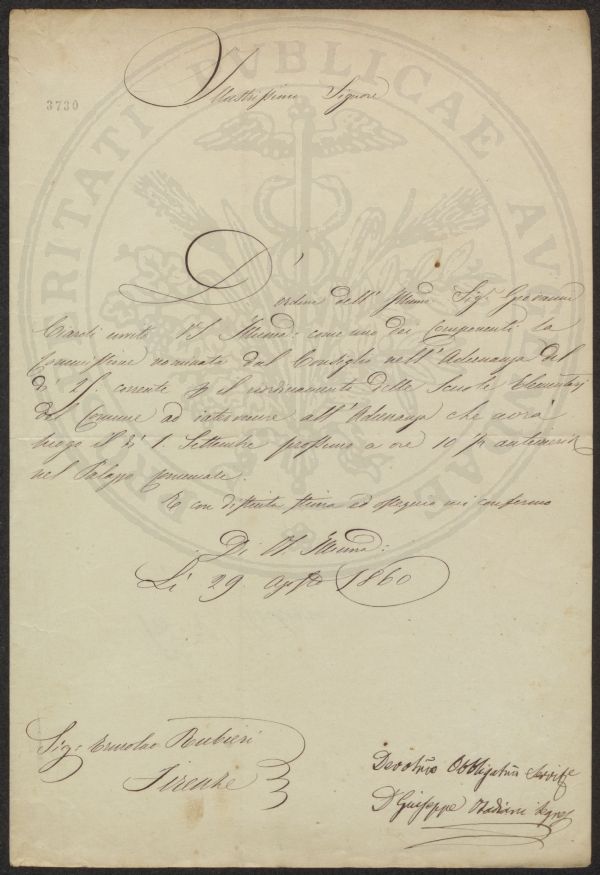 3730
Illustrissimo Signore
D'ordine dell' Illmo Sigr. Giovanni
Caroli invito VS Illma: come uno dei Componenti la
Commissione nominata dal Consiglio nell'Adunanza del
dì 25. corrente p il riordinamento delle Scuole Elementari
del Comune ad intervenire all'Adunanza che avrà
luogo il dì 1. Settembre prossimo a ore 10 antimerid
nel Palazzo comunale.
E con distinta stima ed ossequio mi confermo
Di VS Illma:
Li 29 Agosto 1860
Sigr. Ermolao Rubieri
Firenze
Devotmo Obbligatmo Servitre
Dr Giuseppe Radiani Segrio
PROSPERITATI PVBLICAE AVGENDAE